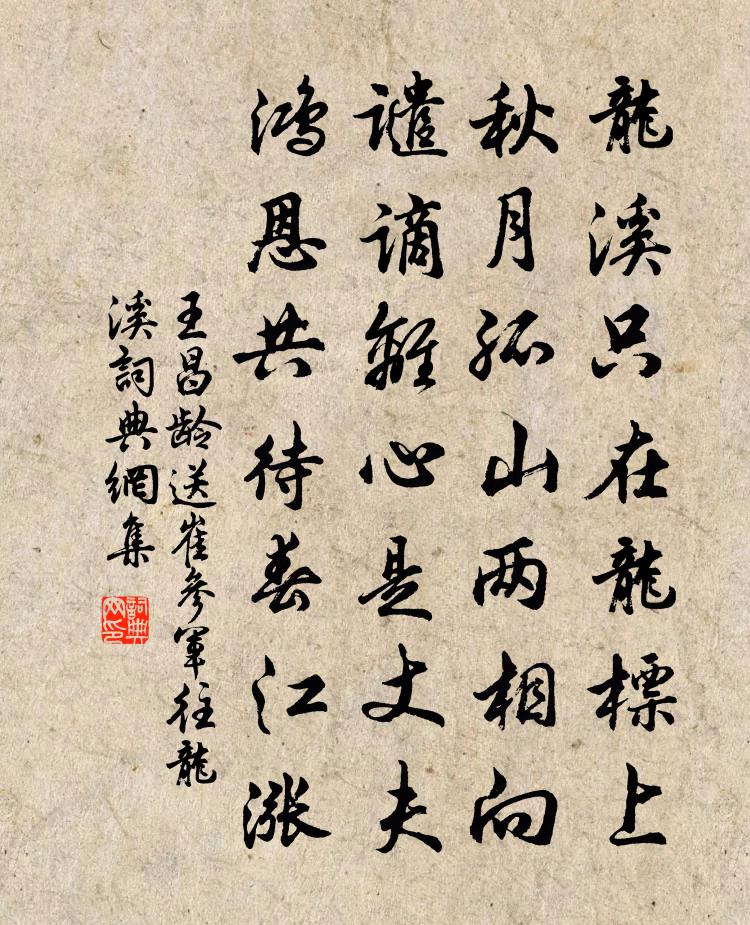 龍溪只在龍標上
秋月孤山两相向
譴謫離心是丈夫
鴻恩共待春江漲
王昌龄送崔參軍往龍
溪詞典網集
詞典网印